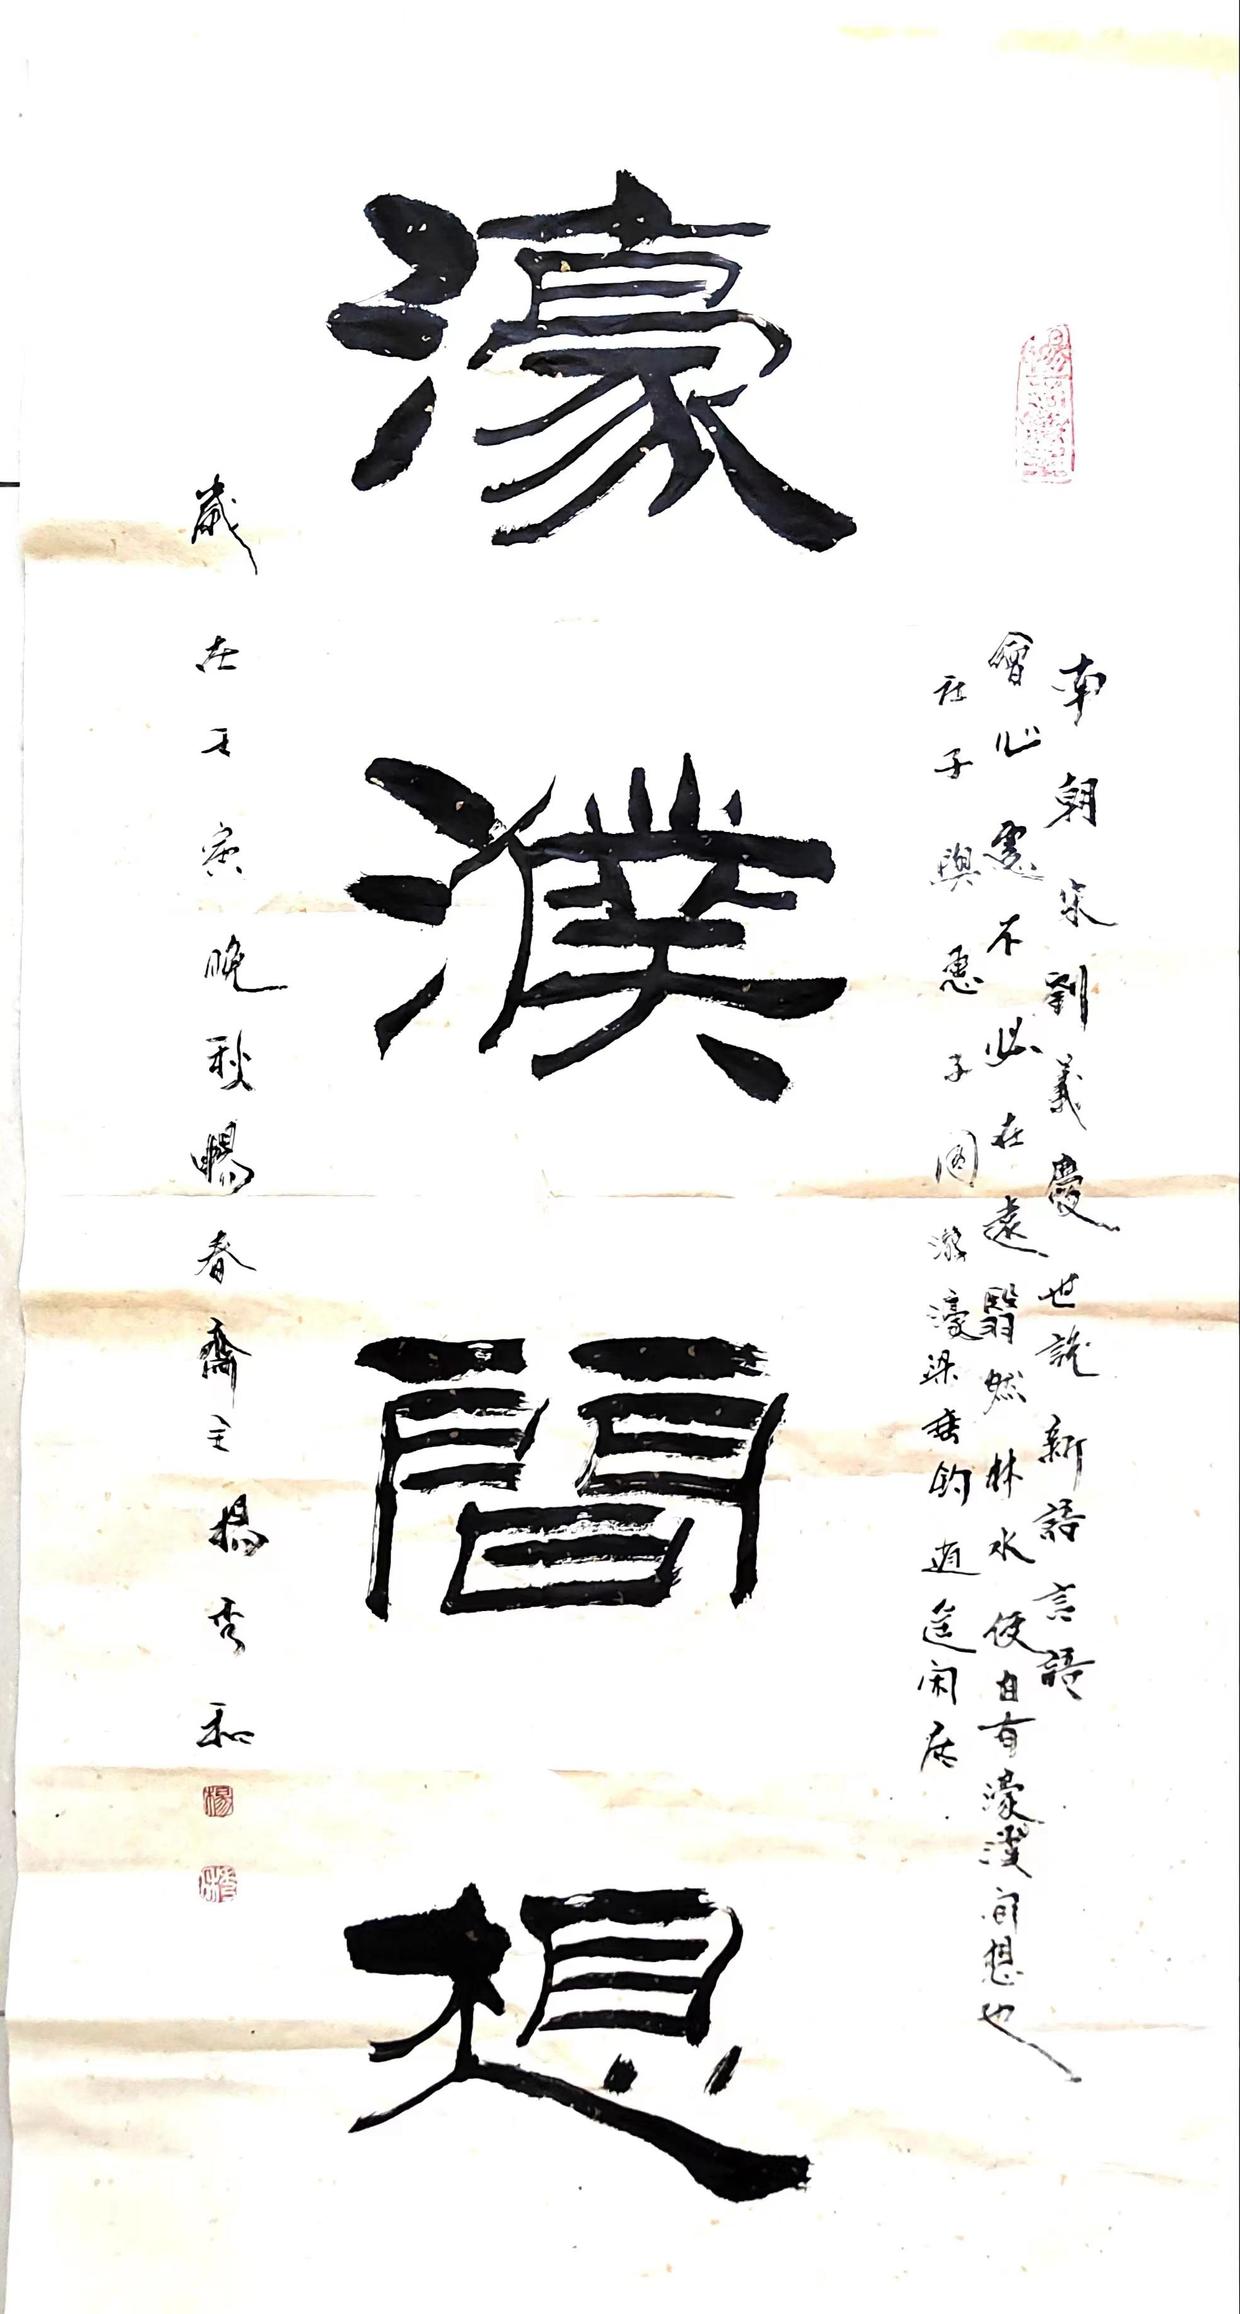 南朝宋劉義慶世說新語言語
會心處不必在遠翳然林水便自有濠濮間想也
莊子與惠子同游濠梁垂釣逍遙闲居
濠濮間想
歲在壬寅晚秋暢春齋主楊秀和
楊